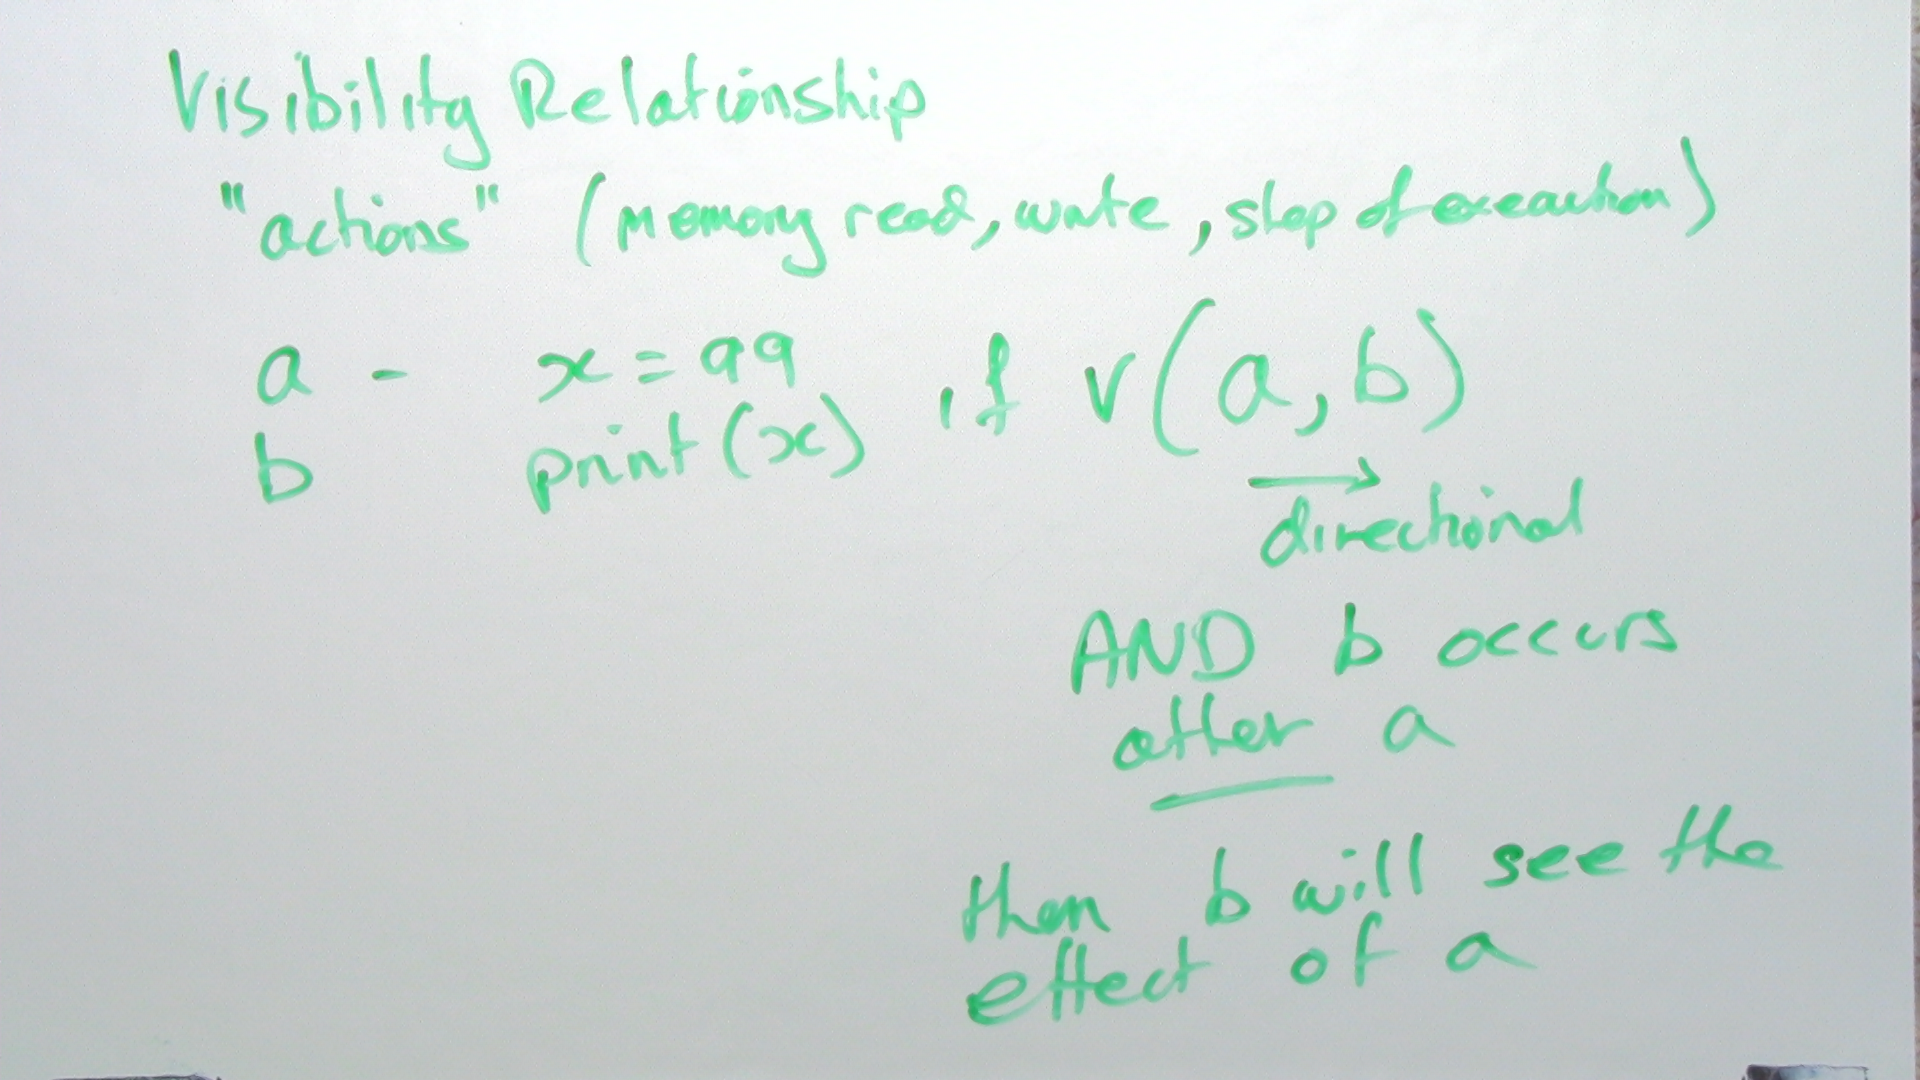 Visibility Relationship
"actions" (memory read, write, step of execution)
a - x = 99 if v(a, b)
b print(x)
directional
AND b occurs
after a
then b will see the
effect of a